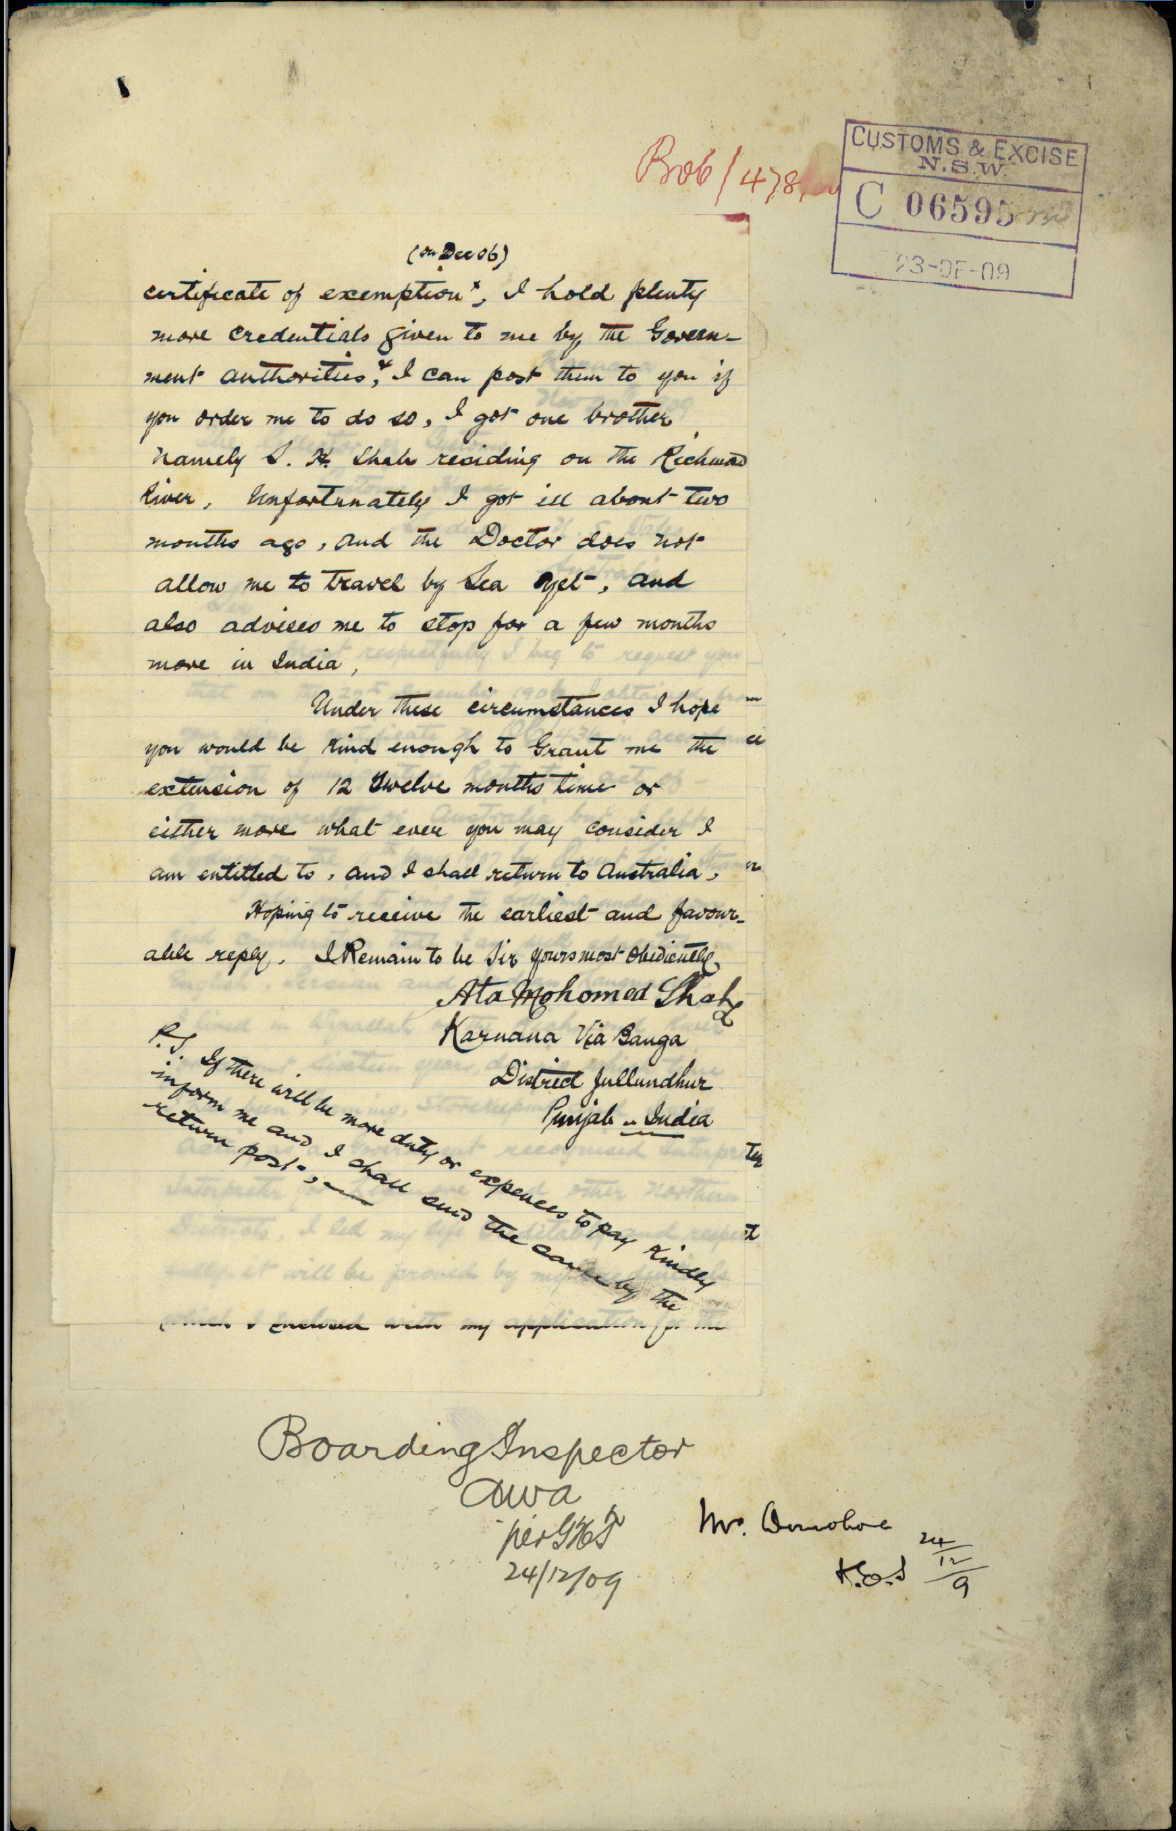 B06/478
CUSTOMS & EXCISE
N.S.W.
C 06595
23-DE-09
(on Dec 06)
certificate of exemption x, I hold plenty
more credentials given to me by the Govern-
ment authorities, & I can post them to you if
you order me to do so, I got one brother
namely S. H. Shah residing on the Richmond
River, Unfortunately I got ill about two
months ago, and the Doctor does not
allow me to travel by Sea yet, and
also advises me to stop for a few months
more in India,
Under these circumstances I hope
you would be kind enough to Grant me the
extension of 12 twelve months time or
either more what ever you may consider I
am entitled to, and I shall return to Australia,
Hoping to receive the earliest and favour-
able reply. I Remain to be Sir yours most obidiently
Ata Mohomed Shah
Karnana Via Banga
District Jullundhur
Punjab - India
P.S. If there will be more duty or expences to pay kindly
inform me and I shall send the same by the
return post,
which I enclosed with my application for the
Boarding Inspector
awa
per GHF
24/12/09
Mr. Donohoe
24/12/9